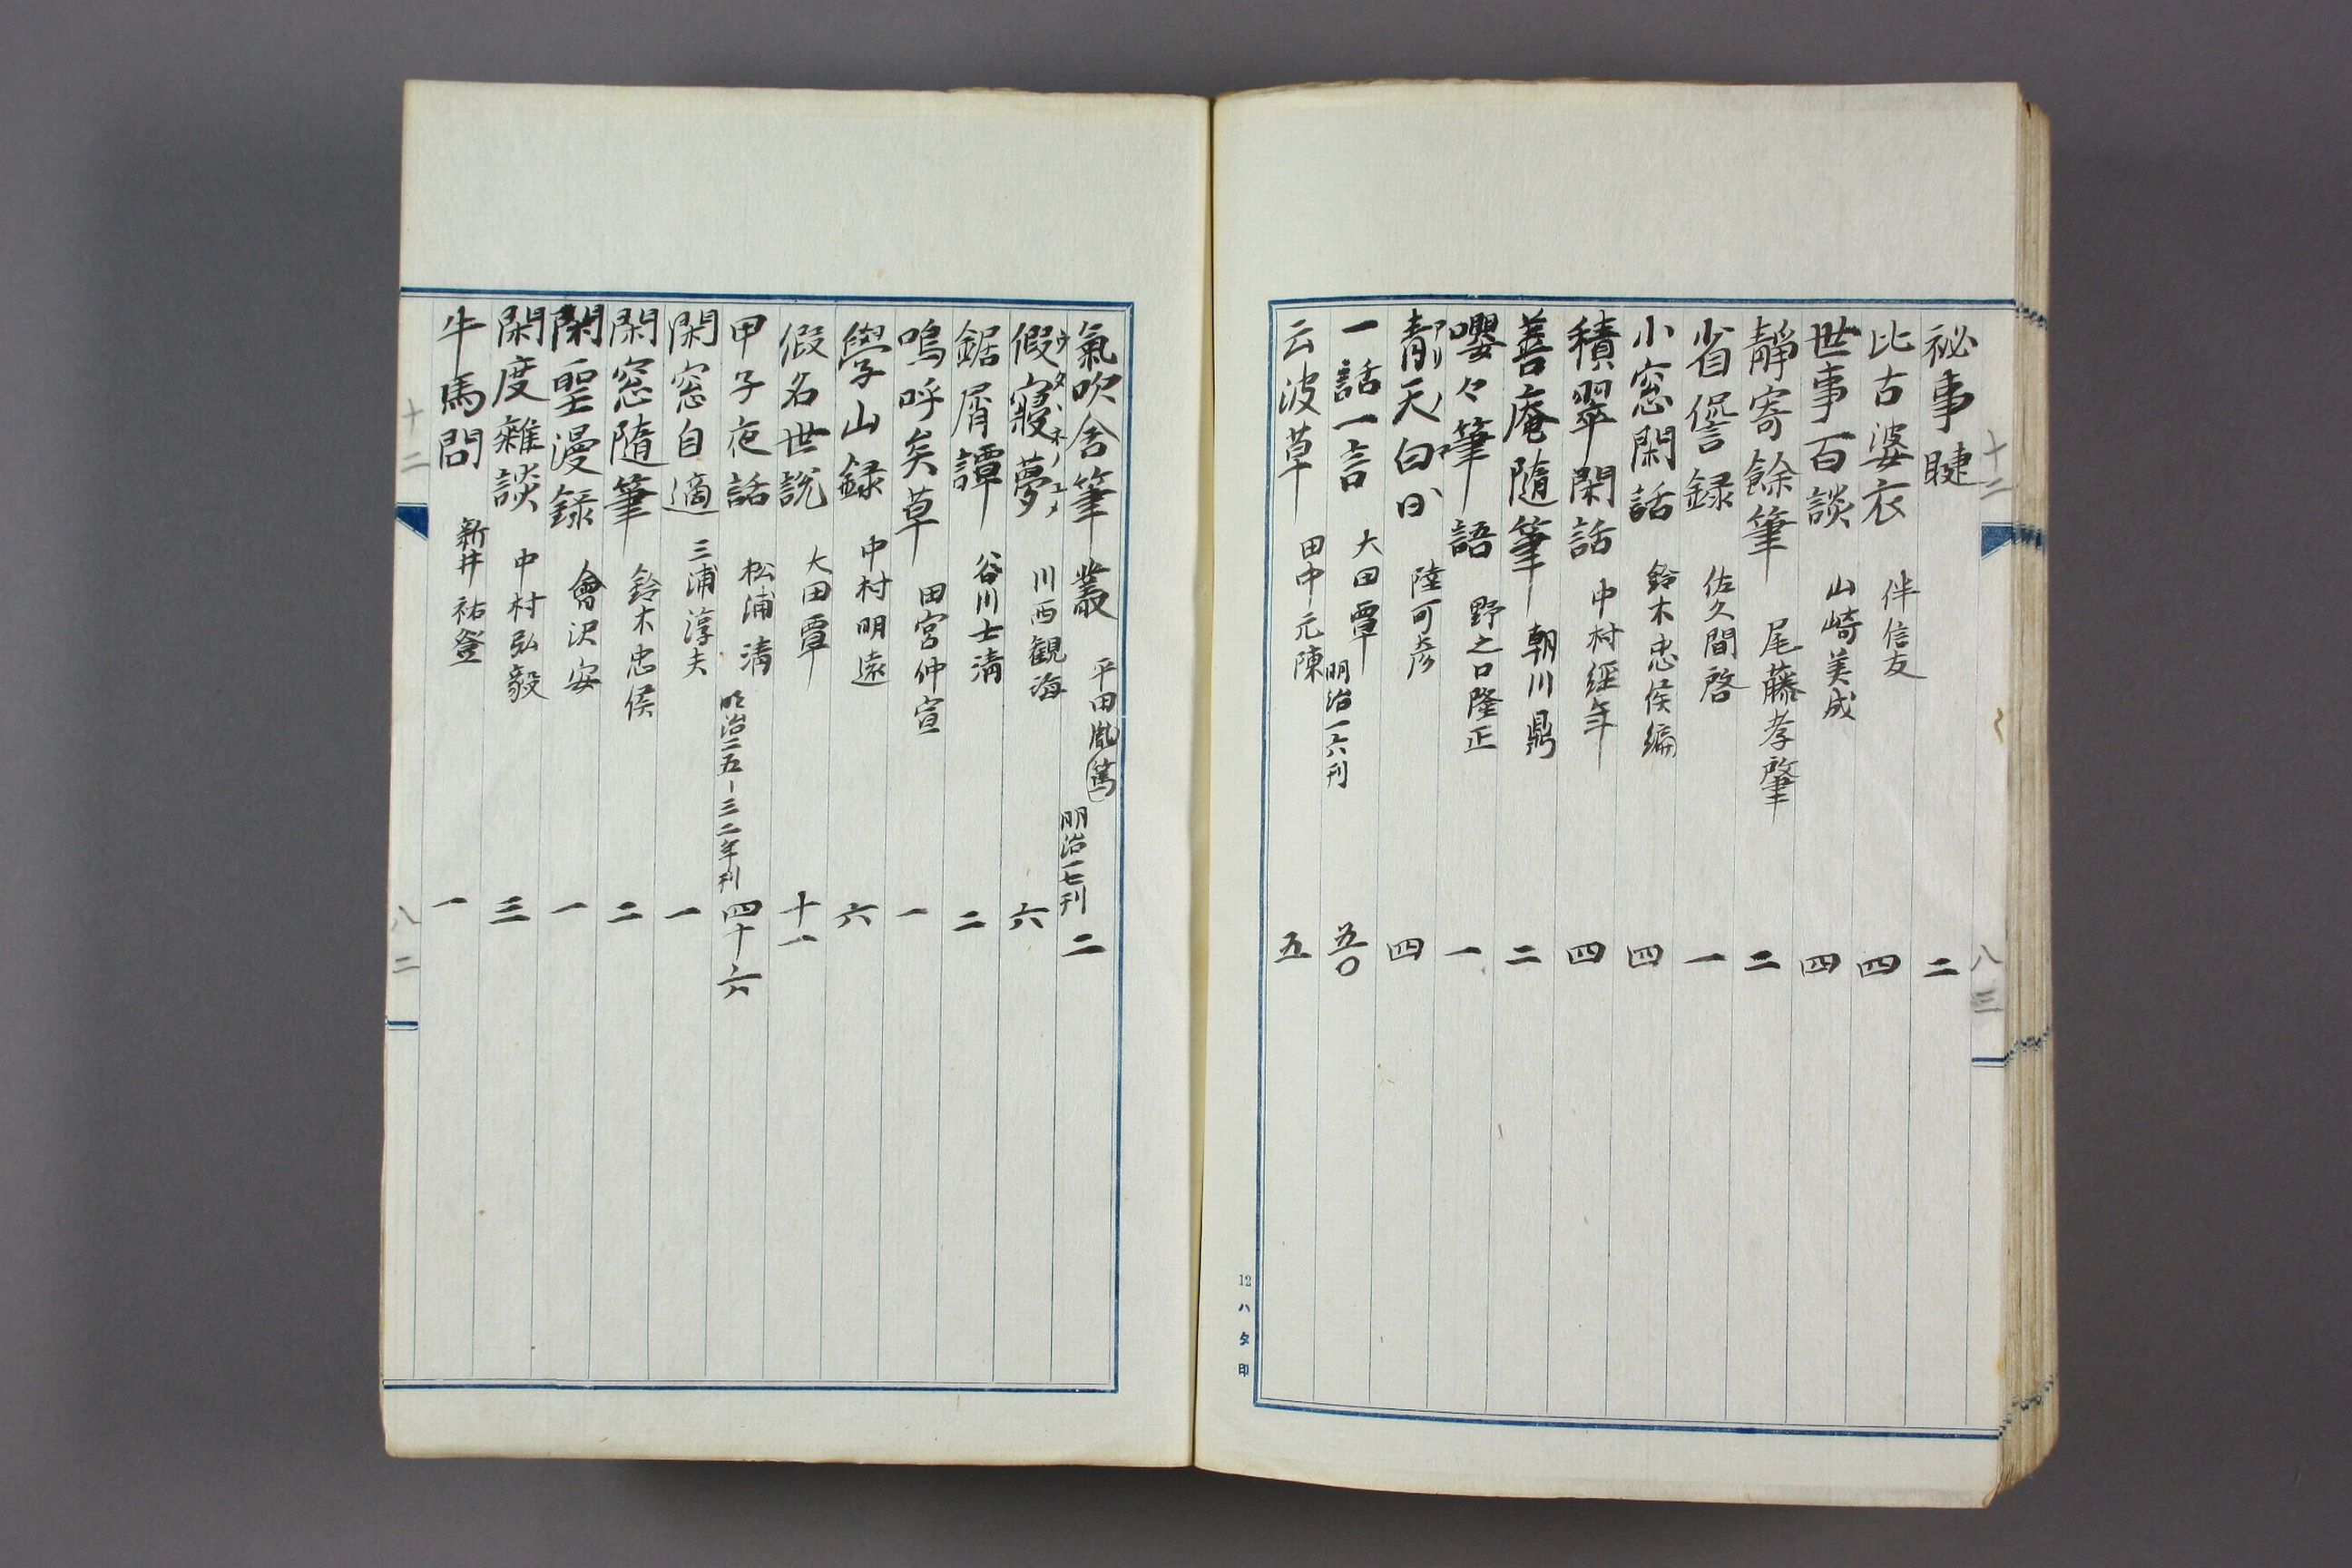 十二
八三
祕事睫 二
比古婆衣 伴信友 四
世事百談 山崎美成 四
靜寄餘筆 尾藤孝肇 二
省諐録 佐久間啓 一
小窓閑話 鈴木忠侯編 四
積翠閑話 中村經年 四
善庵隨筆 朝川鼎 二
嚶々筆語 野之口隆正 一
青天白日 陸可彦 四
一話一言 大田覃 明治一六刊 五〇
云波草 田中元陳 五
12ハタ印
氣吹舎筆叢 平田胤篤 明治一七刊 二
假寢夢 ウタヽネノユメ 川西観海 六
鋸屑譚 谷川士淸 二
嗚呼矣草 田宮仲宣 一
學山録 中村明遠 六
假名世説 大田覃 十一
甲子夜話 松浦淸 明治二五-三二年刊 四十六
閑窓自適 三浦淳夫 一
閑窓隨筆 鈴木忠侯 二
閑聖漫録 會沢安 一
閑度雜談 中村弘毅 三
牛馬問 新井祐登 一
十二
八二